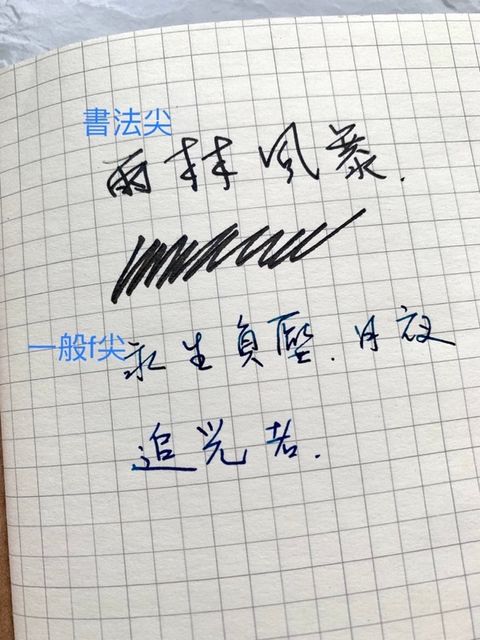 書法尖
雨林风暴.
一般f尖
永生負
追光者.